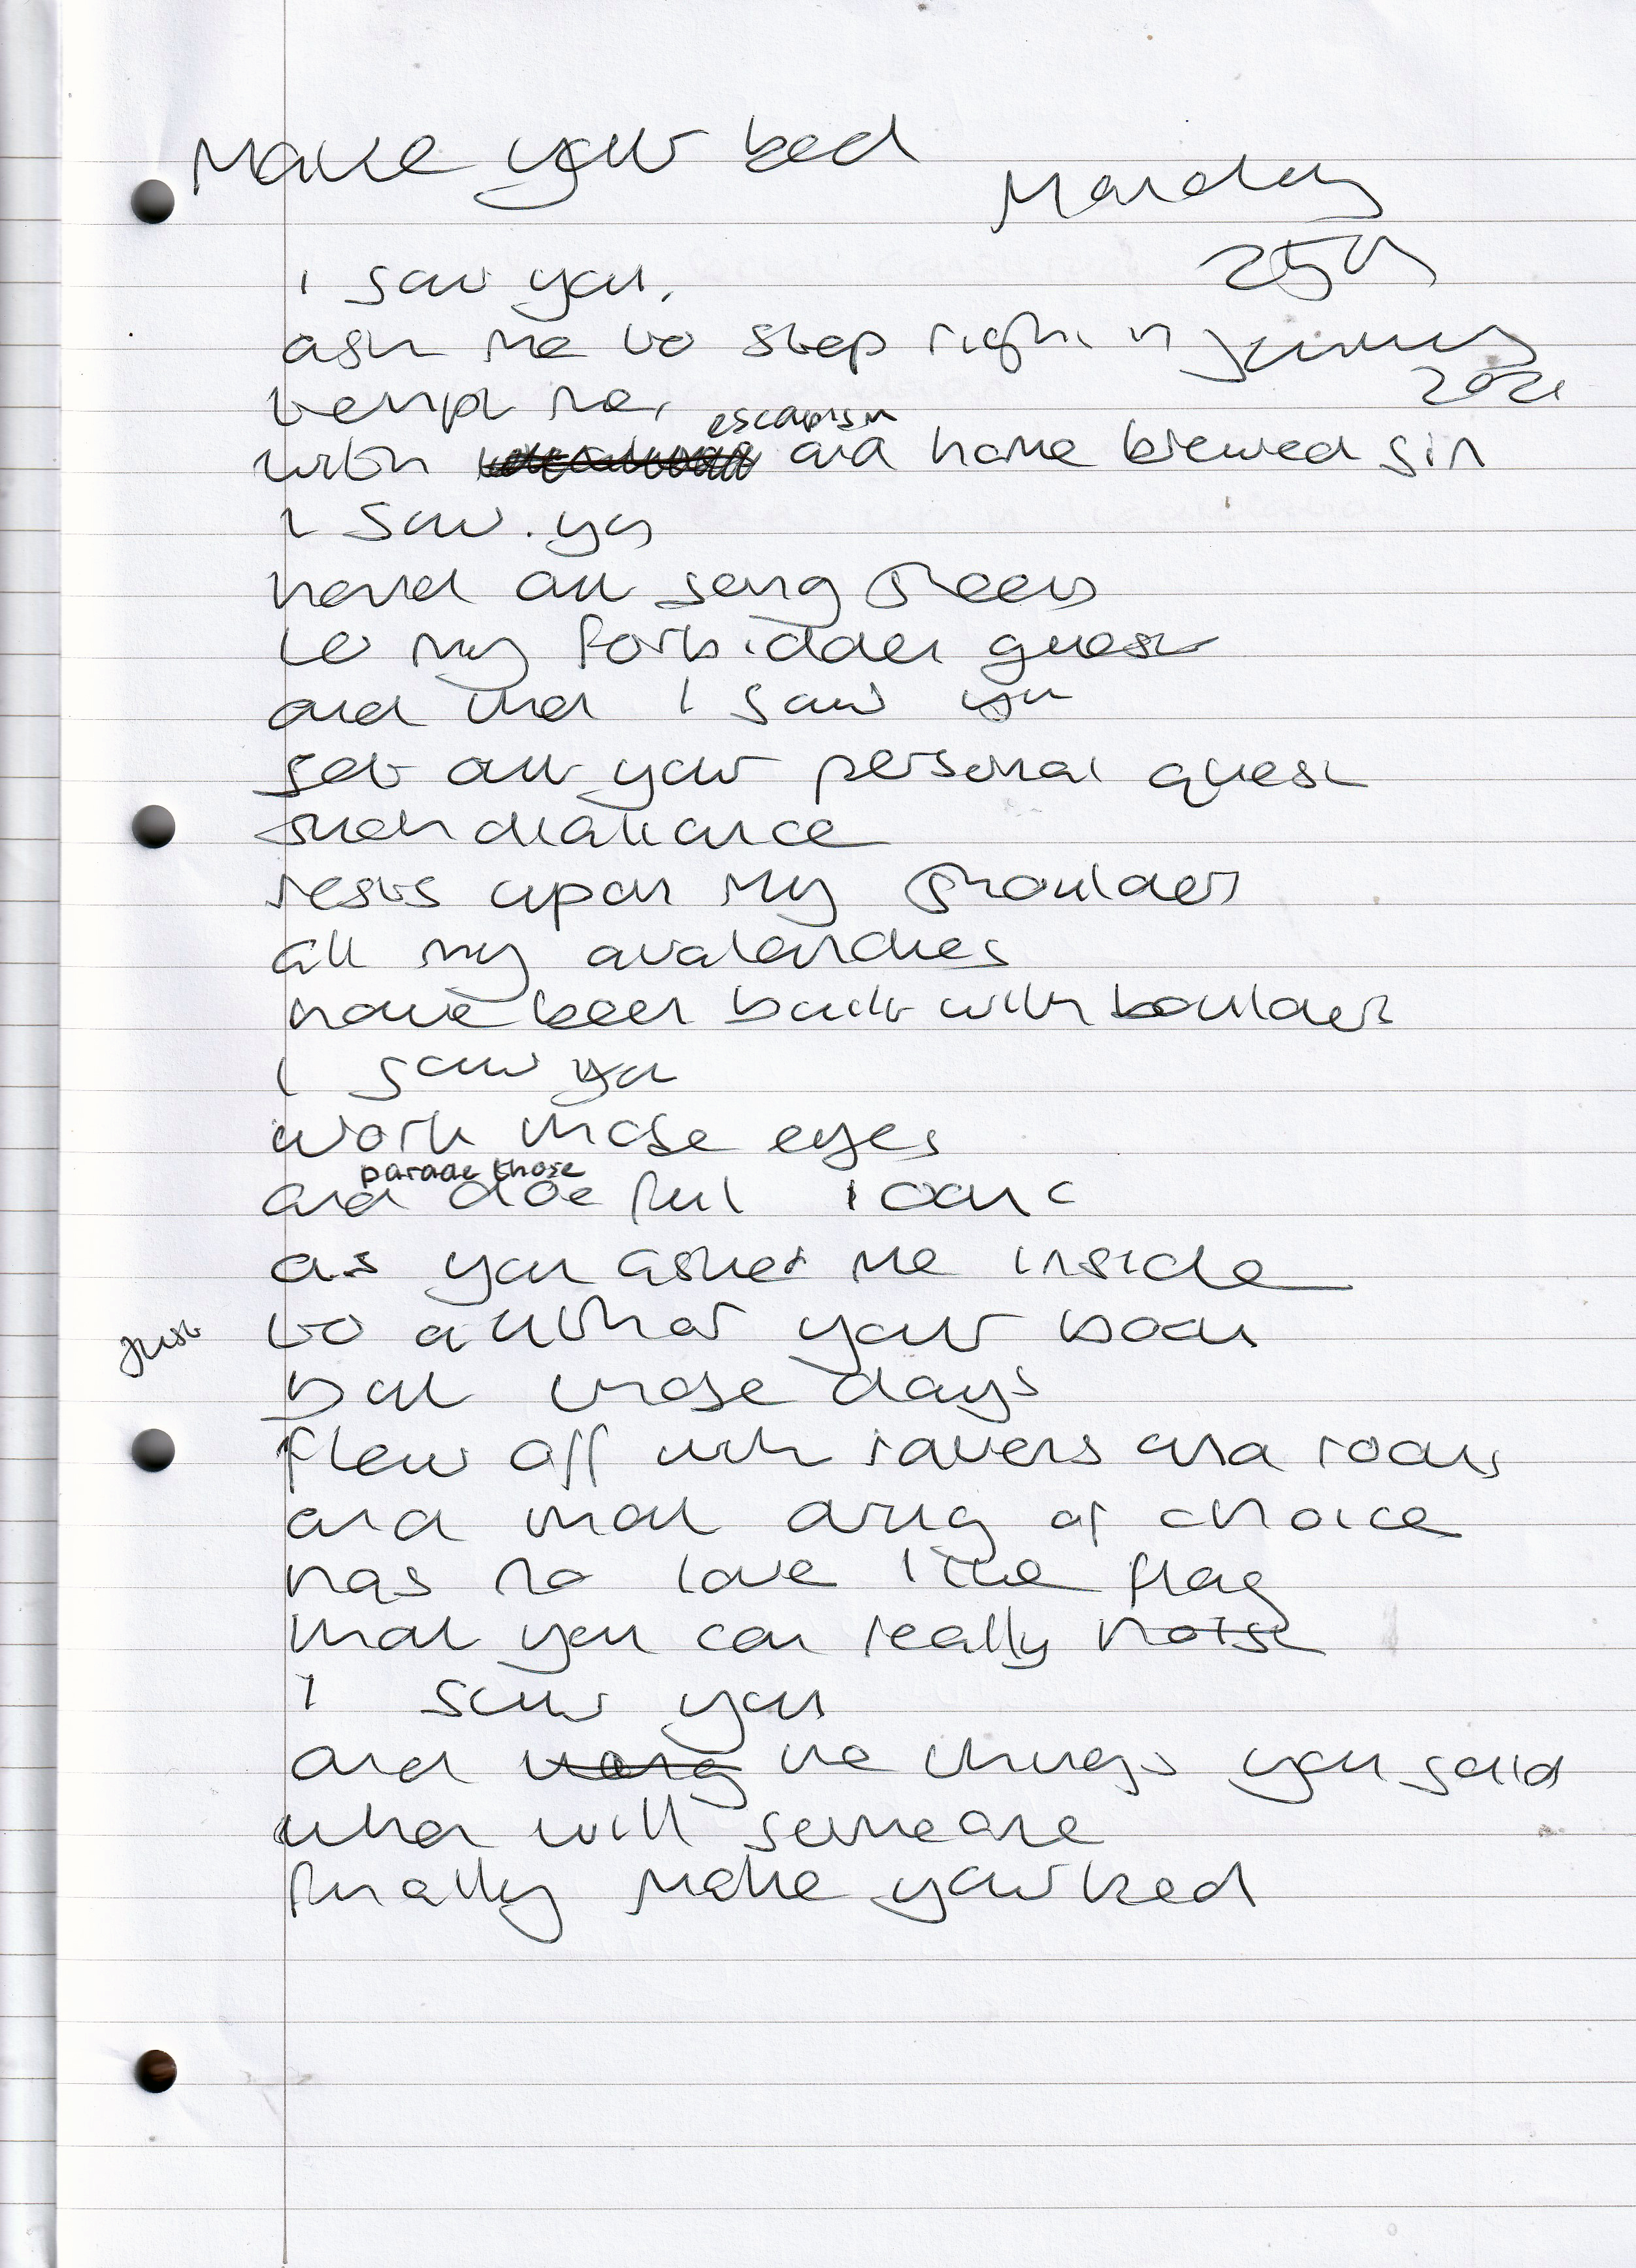 Make your bed
Monday
25th
January
2021
I saw you,
ask me to step right in
tempt me,
escapism
with and home brewed gin
I saw you
hand out song sheets
to my forbidden guest
and then I saw you
set out your personal quest
such defiance
rests upon my shoulders
all my avalanches
have been built with boulders
I saw you
work those eyes
parade those
and doe full
as you asked me inside
just
to your
but those days
flew off with ravens and rooks
and that drug of choice
has no love like flag
that you can really hoist
I saw you
and the things you said
when will someone
finally make your bed